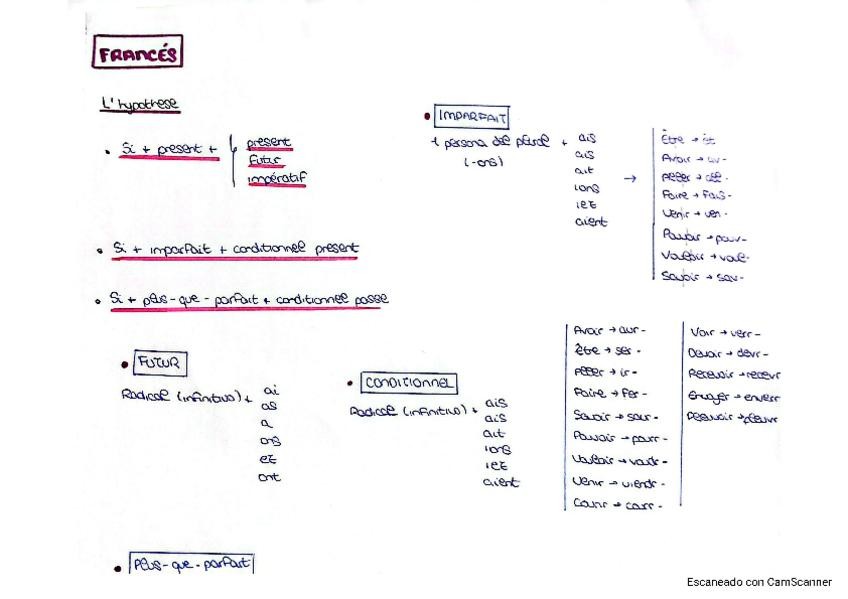 FRANCÉS
L'hypothese
• Si + present +
present
futur
impératif
• Si + imparfait + conditionnel present
• Si + plus-que-parfait + conditionnel passe
• IMPARFAIT
1 persona del plural +
(-ons)
ais
ais
ait
ions
iez
aient
→
Être → ét
Avoir → av-
Aller → all-
Faire → fais-
Venir → ven-
Pouvoir → pouv-
Vouloir → voul-
Savoir → sav-
• FUTUR
Radical (infinitivo) +
ai
as
a
ons
ez
ont
• CONDITIONNEL
Radical (infinitivo) +
ais
ais
ait
ions
iez
aient
Avoir → aur-
Être → ser-
Aller → ir-
Faire → fer-
Savoir → saur-
Pouvoir → pourr-
Vouloir → voudr-
Venir → viendr-
Courir → courr-
Voir → verr-
Devoir → devr-
Recevoir → recevr
Envoyer → enverr
→ pleuvr
• Plus-que-parfait
Escaneado con CamScanner